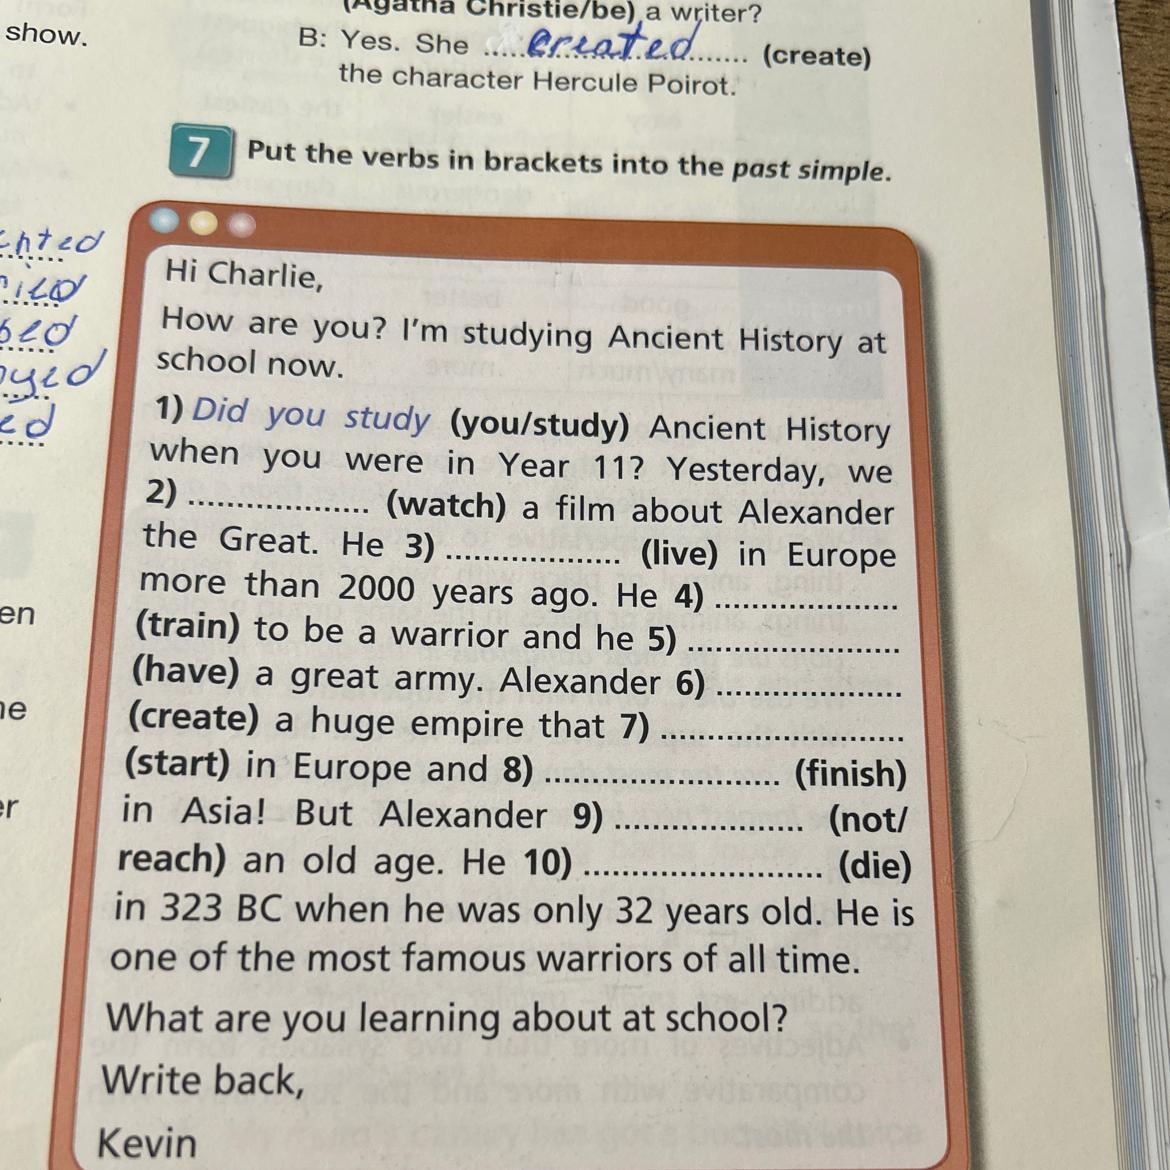 (Agatha Christie/be) a writer?
show.
B: Yes. She ..... created ....... (create)
the character Hercule Poirot.
7 Put the verbs in brackets into the past simple.
Hi Charlie,
How are you? I'm studying Ancient History at
school now.
1) Did you study (you/study) Ancient History
when you were in Year 11? Yesterday, we
2) ................... (watch) a film about Alexander
the Great. He 3) ................... (live) in Europe
more than 2000 years ago. He 4) ....................
(train) to be a warrior and he 5) .......................
(have) a great army. Alexander 6) ....................
(create) a huge empire that 7) ..........................
(start) in Europe and 8) ......................... (finish)
in Asia! But Alexander 9) .................... (not/
reach) an old age. He 10) ......................... (die)
in 323 BC when he was only 32 years old. He is
one of the most famous warriors of all time.
What are you learning about at school?
Write back,
Kevin